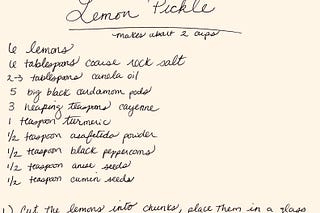 Lemon Pickle
makes about 2 cups
6 lemons
6 tablespoons coarse rock salt
2-3 tablespoons canola oil
5 big black cardamom pods
3 heaping teaspoons cayenne
1 teaspoon turmeric
1/2 teaspoon asafetida powder
1/2 teaspoon black peppercorns
1/2 teaspoon anise seeds
1/2 teaspoon cumin seeds
1) Cut the lemons into chunks, place them in a glass